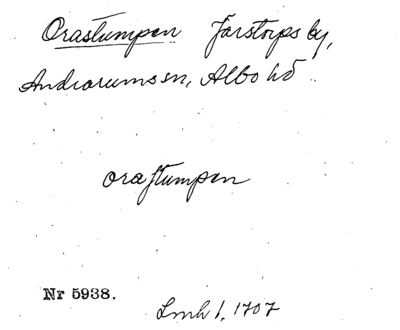 Orastumpen Järstorps by,
Andrarums sn, Albo hd
orastumpen
Nr 5938.
Lmh 1, 1707